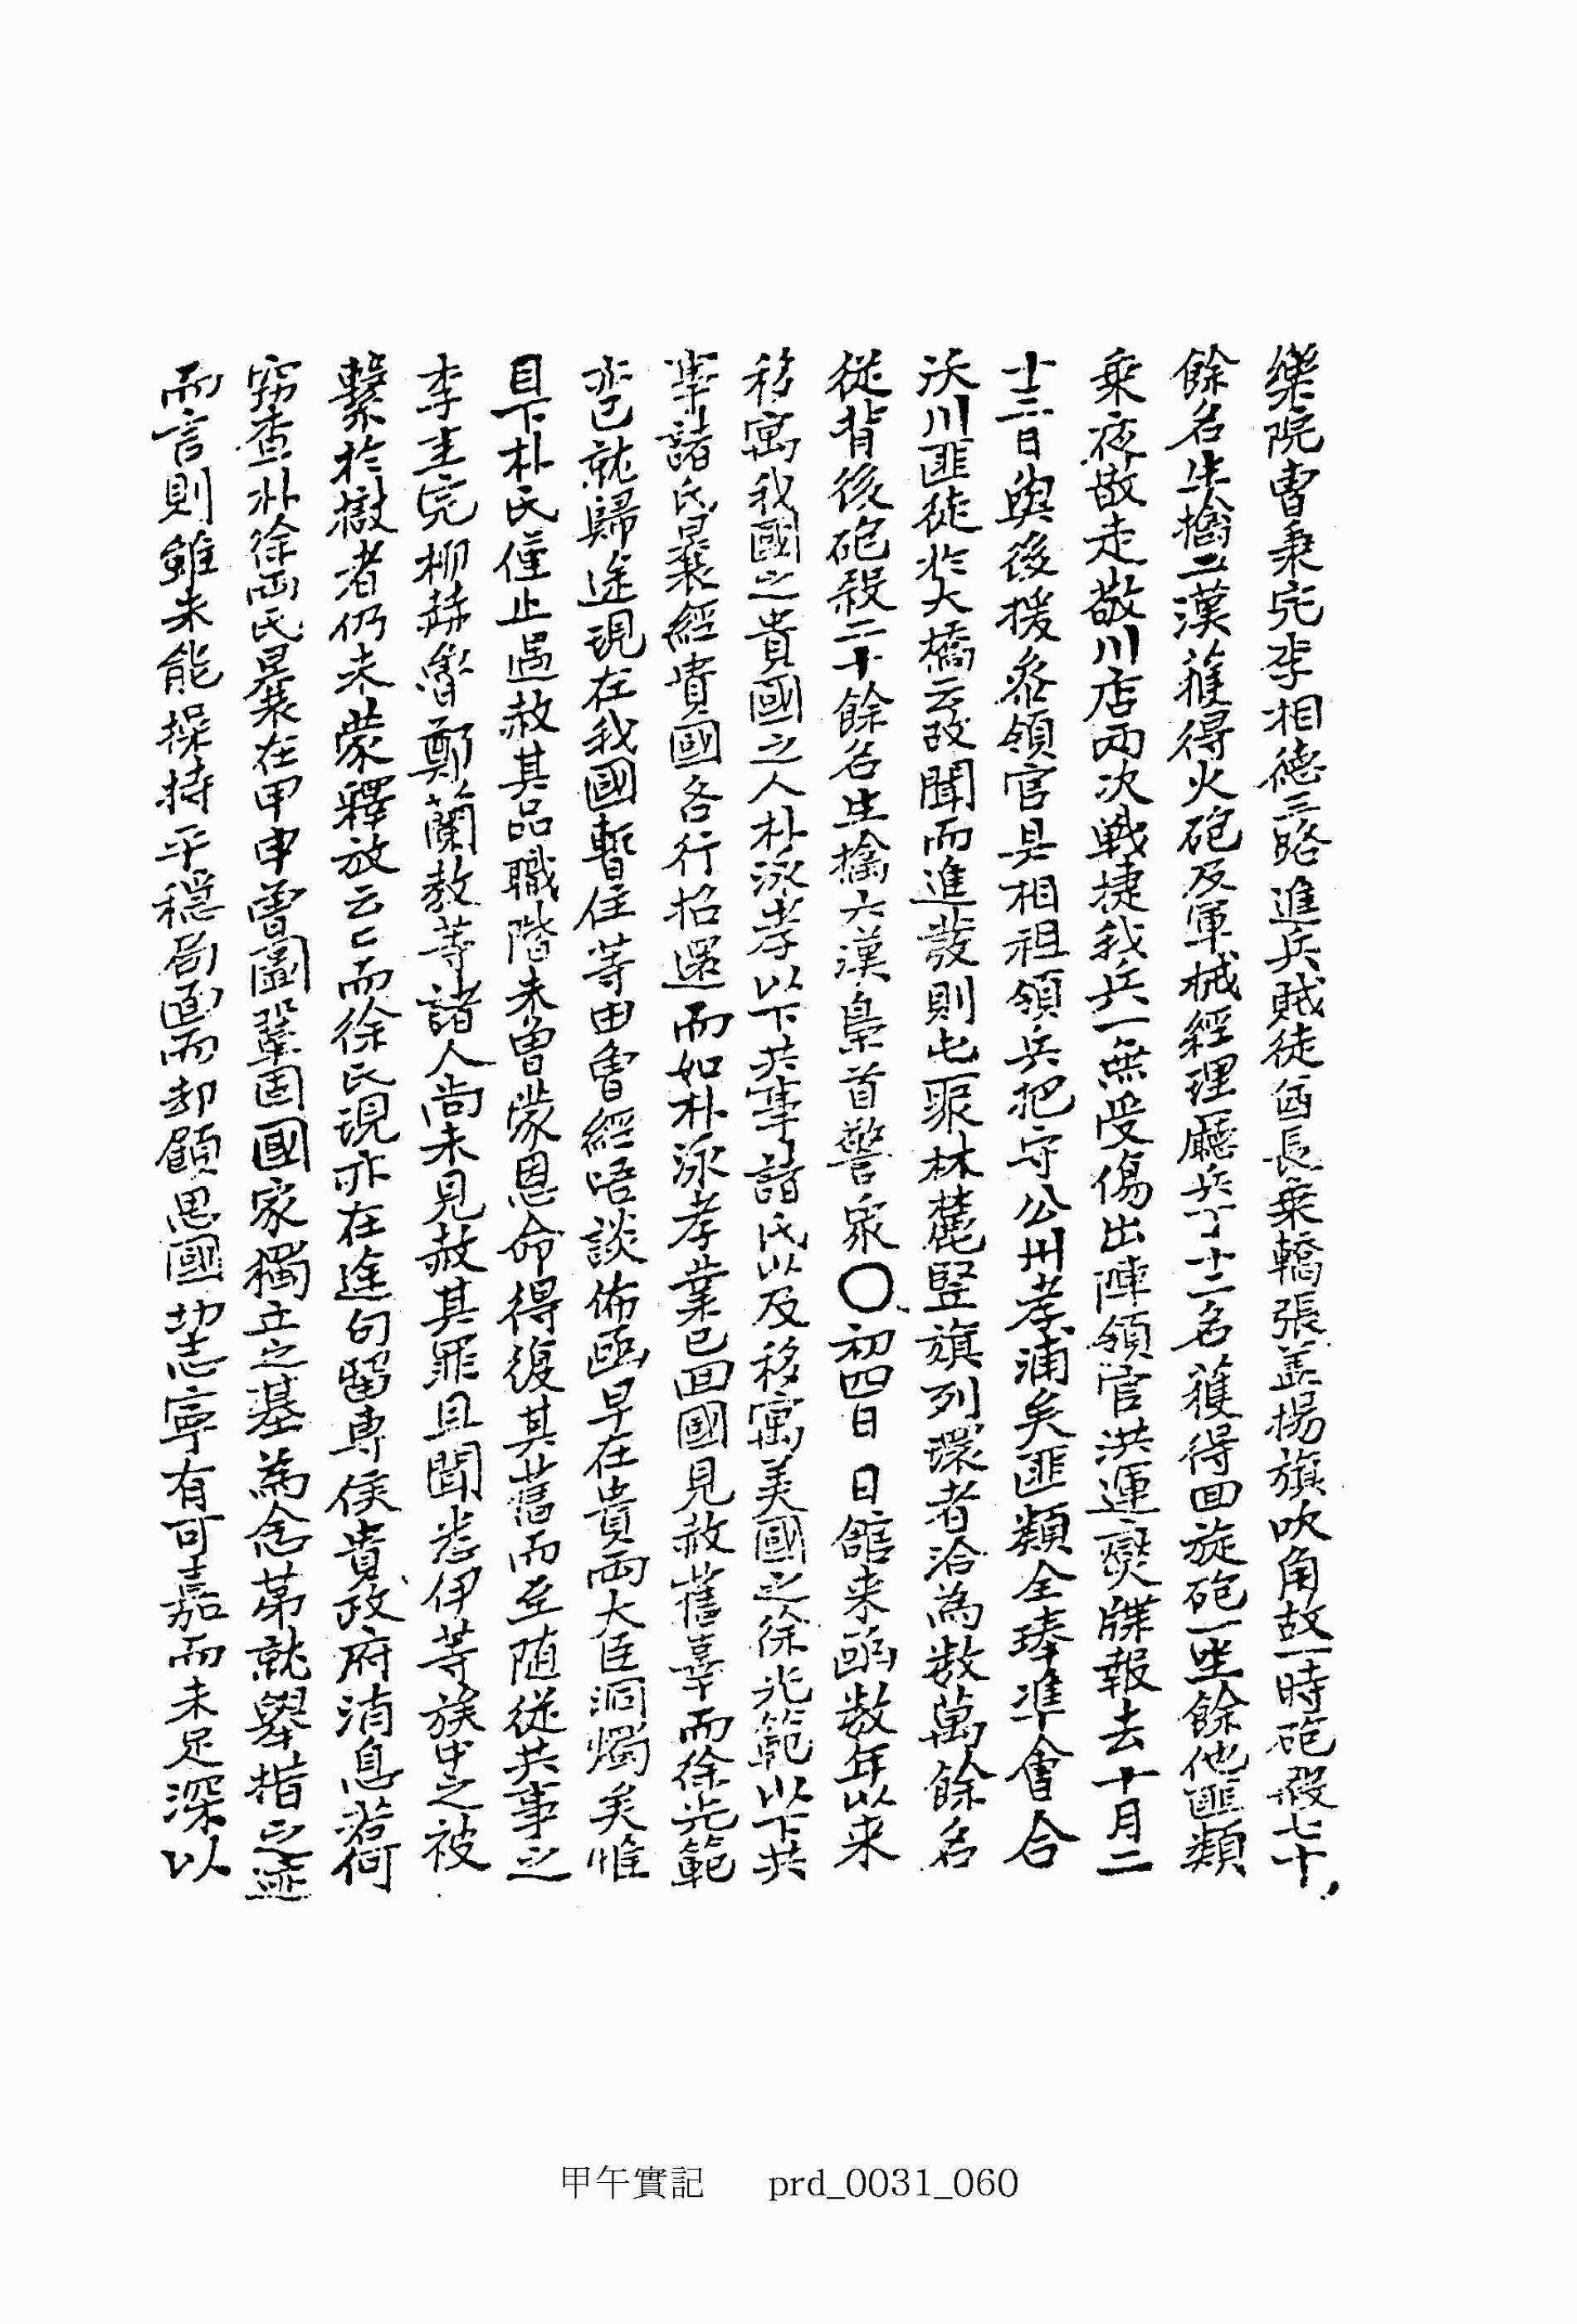 樂院曹秉完李相德三路進兵賊徒酋長乘轎張盖揚旗吹角故一時砲殺七十
餘名生擒二漢獲得火砲及軍械經理廳兵丁十二名獲得回旋砲一坐餘他匪類
乘夜散走敬川店兩次戰捷我兵一無受傷出陣領官洪運燮牒報去十月二
十三日與後援叅領官具相祖領兵把守公州孝浦矣匪類全琫準會合
沃川匪徒於大橋云故聞而進發則屯聚林麓竪旗列環者洽為數萬餘名
從背後砲殺二十餘名生擒六漢梟首警衆〇初四日 日館来函數年以来
移寓我國之貴國之人朴泳孝以下共事諸氏以及移寓美國之徐光範以下共
事諸氏曩經貴國各行招還而如朴泳孝業已回國見赦舊辜而徐光範
亦已就歸途現在我國暫住等由曾經唔談佈函早在貴兩大臣洞燭矣惟
目下朴氏僅止邀赦其品職階未曾蒙恩命得復其舊而至随從共事之
李圭完柳赫魯鄭蘭教等諸人尚未見赦其罪且聞悉伊等族中之被
繫於獄者仍未蒙釋放云云而徐氏現亦在途句留專俟貴政府消息若何
竊查朴徐兩氏曩在甲申曾圖鞏固國家獨立之基為念苐就舉措之迹
而言則雖未能操持平穩局面而却顧思國功志寧有可嘉而未足深以
甲午實記 prd_0031_060